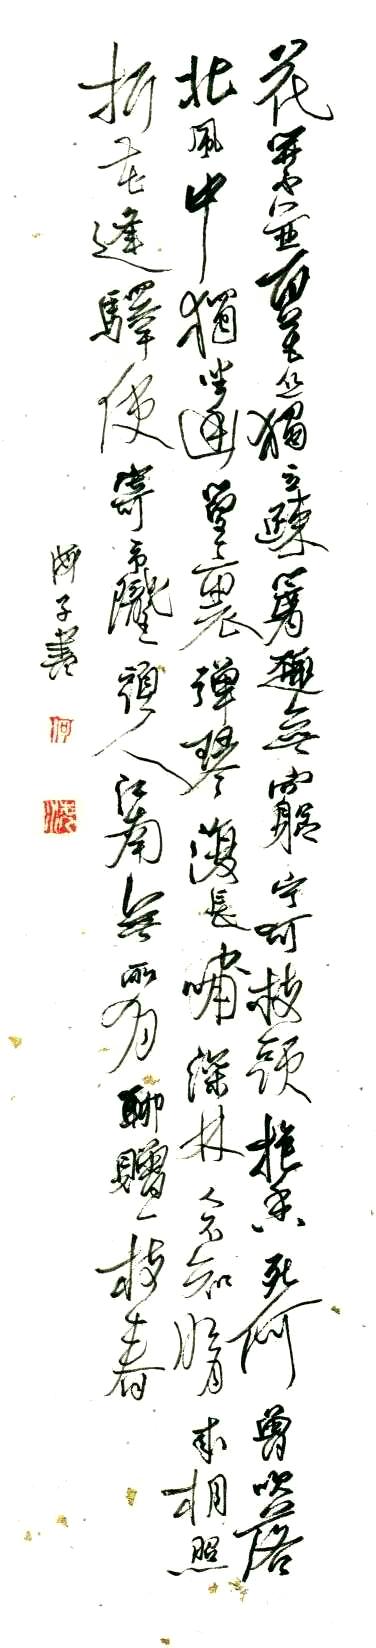 花開不並百花叢獨立疎籬趣無窮寧可枝頭抱香死何曾吹落
北風中獨坐幽篁裏彈琴復長嘯深林人不知明月來相照
折花逢驛使寄與隴頭人江南無所有聊贈一枝春
海子書
何